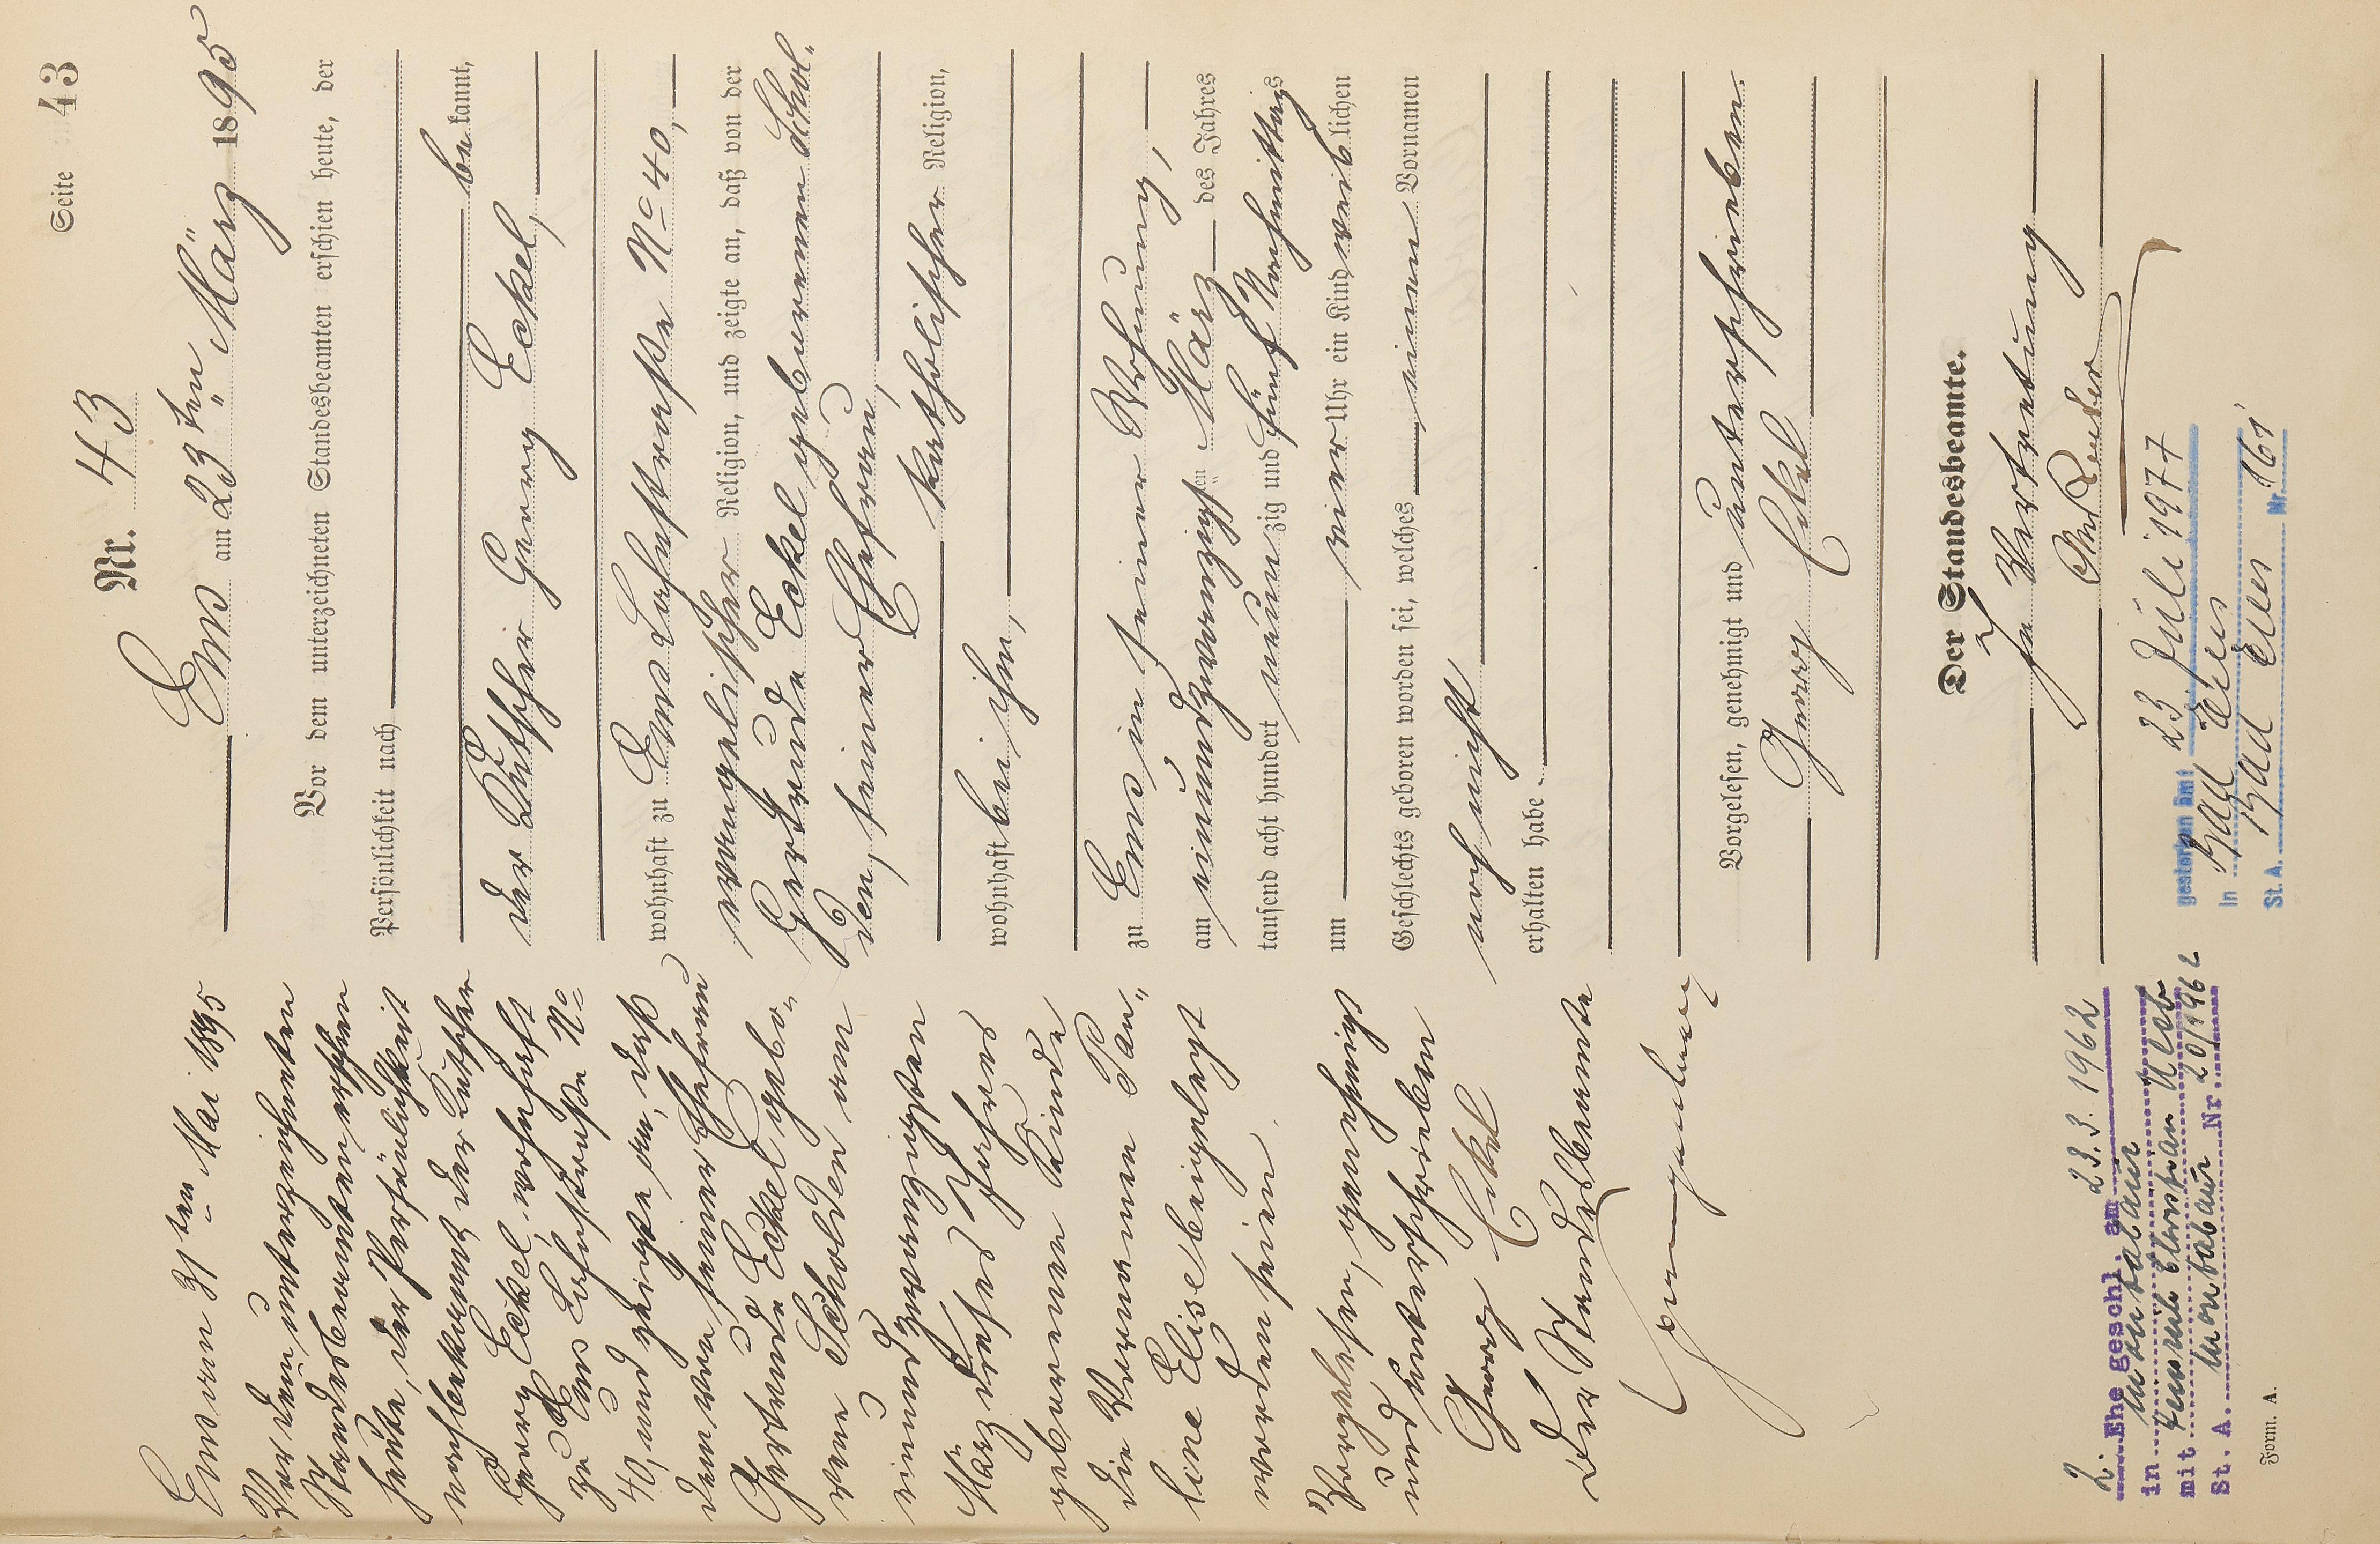 Seite 43
Nr. 43
Ems am 23ten März 1895
Vor dem unterzeichneten Standesbeamten erschien heute, der
Persönlichkeit nach
bekannt,
der Kutscher Georg Eckel,
wohnhaft zu Ems Lahnstraße No 40,
evangelischer Religion, und zeigte an, daß von der
Gertrude Eckel geborenen Schol-
den, seiner Ehefrau,
katholischer Religion,
wohnhaft bei ihm,
zu Ems in seiner Wohnung,
am einundzwanzigsten März des Jahres
tausend acht hundert neunzig und fünf Nachmittags
um vier Uhr ein Kind weiblichen
Geschlechts geboren worden sei, welches einen Vornamen
noch nicht
erhalten habe.
Vorgelesen, genehmigt und unterschrieben
Georg Eckel
Der Standesbeamte.
In Vertretung
Ems am 31ten Mai 1895
Vor dem unterzeichneten
Standesbeamten erschien
heute, der Persönlichkeit
nach bekannt, der Kutscher
Georg Eckel, wohnhaft
zu Ems Lahnstraße No
40, und zeigte an, daß
dem von seiner Ehefrau
Gertrude Eckel gebo-
rene Scholden am
einundzwanzigsten
März dieses Jahres
geborenen Kinde
die Vornamen Pau-
line Elise beigelegt
worden seien.
Vorgelesen, genehmigt
und unterschrieben
Georg Eckel
Der Standesbeamte
2. Ehe geschl. am 23.3.1962
in Montabaur
mit
St. A. Montabaur Nr. 20/1962
gestorben am: 23. Juli 1977
in Bad Ems
St. A. Bad Ems Nr. 161
Form. A.